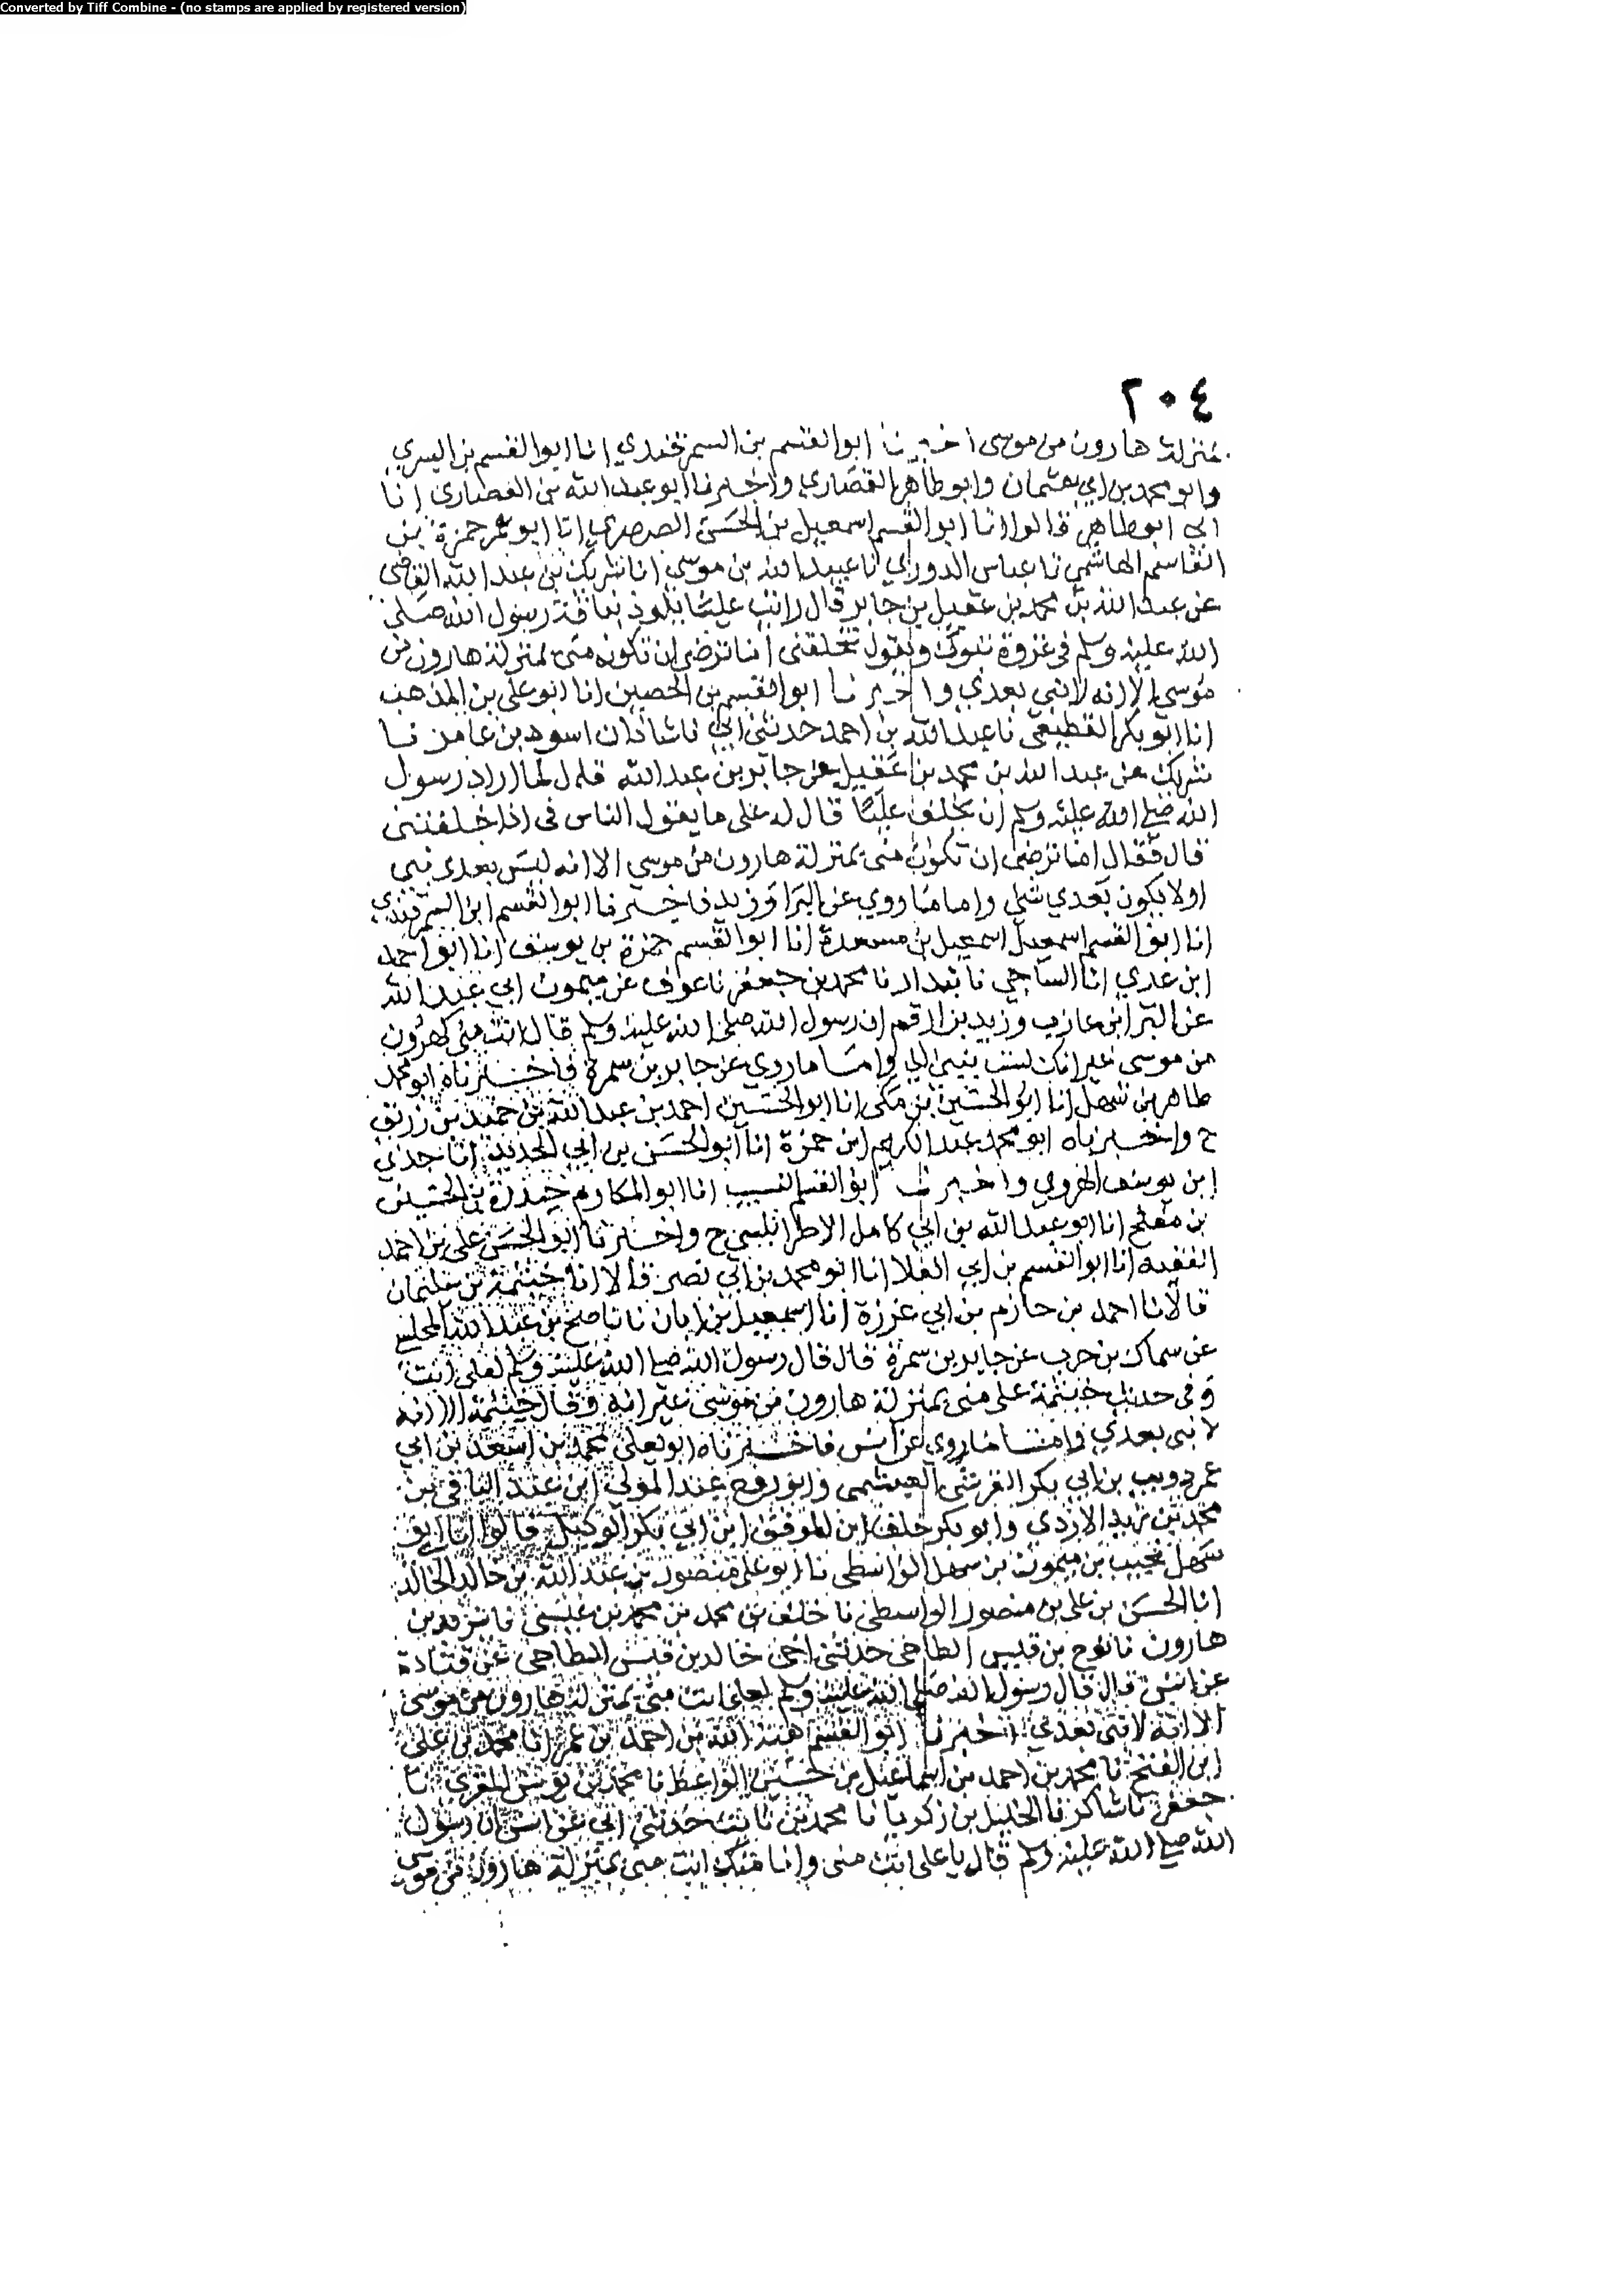 Converted by Tiff Combine - (no stamps are applied by registered version)
٢٠٤
بمنزلة هارون من موسى اخبرنا ابو القسم بن السمرقندي انا ابو القسم بن البسري
وابو محمد بن ابي عثمان وابو طاهر القصاري واخبرنا ابو عبد الله بن القصاري انا
ابي ابو طاهر قالوا انا ابو القسم اسمعيل بن الحسن الصرصري انا ابو عمر حمزة بن
القاسم الهاشمي نا عباس الدوري انا عبيد الله بن موسى انا شريك بن عبد الله القاضي
عن عبد الله بن محمد بن عقيل بن جابر قال رايت عليا يلوذ بناقة رسول الله صلى
الله عليه وسلم في غزوة تبوك ويقول تخلفني اما ترضى ان تكون مني بمنزلة هارون من
موسى الا انه لا نبي بعدي واخبرنا ابو القسم بن الحصين انا ابو علي بن المذهب
انا ابو بكر القطيعي نا عبد الله بن احمد حدثني ابي نا شاذان اسود بن عامر نا
شريك عن عبد الله بن محمد بن عقيل عن جابر بن عبد الله قال لما اراد رسول
الله صلى الله عليه وسلم ان يخلف عليا قال له على ما يقول الناس في اذا خلفتني
قال فقال اما ترضى ان تكون مني بمنزلة هارون من موسى الا انه ليس بعدي نبي
اولا يكون بعدي شي واما ما روي عن البرا وزيد فاخبرنا ابو القسم ابن السمرقندي
انا ابو القسم اسمعيل اسمعيل بن مسعدة انا ابو القسم حمزة بن يوسف انا ابو احمد
ابن عدي انا الساجي نا بندار نا محمد بن جعفر نا عوف عن ميمون ابي عبد الله
عن البرا بن عازب وزيد بن ارقم ان رسول الله صلى الله عليه وسلم قال انت مني كهرون
من موسى غير انك لست بنبي واما ما روي عن جابر بن سمرة فاخبرناه ابو محمد
طاهر بن سهل انا ابو الحسين بن مكي انا ابو الحسين احمد بن عبد الله بن حميد بن زريق
ح واخبرناه ابو محمد عبد الكريم ابن حمزة انا ابو الحسن بن ابي الحديد انا جدي
ابن يوسف الهروي واخبرنا ابو القسم النسيب انا ابو المكارم حيدرة بن الحسين
بن مفلح انا ابو عبد الله بن ابي كامل الاطرابلسي ح واخبرنا ابو الحسن علي بن احمد
الفقيه انا ابو القسم بن ابي العلا انا ابو محمد بن ابي نصر قالا انا خيثمة بن سليمان
قالا نا احمد بن حازم بن ابي غرزة انا اسمعيل بن ابان نا ناصح بن عبد الله المحلمي
عن سماك بن حرب عن جابر بن سمرة قال قال رسول الله صلى الله عليه وسلم لعلي انت
وفي حديث خيثمة علي مني بمنزلة هارون من موسى غير انه وقال خيثمة الا انه
لا نبي بعدي واما ما روي عن انس فاخبرناه ابو يعلى محمد بن اسعد بن ابي
عمر دويب بن ابي بكر القرشي العبشمي وابو روح عبد المولى ابن عبد الباقي بن
محمد بن يزيد الازدي وابو بكر خلف ابن الموفق ابن ابي بكر الوكيل قالوا انا ابو
سهل نجيب بن ميمون بن سهل الواسطي نا ابو علي منصور بن عبد الله بن خالد الخالدي
انا الحسن بن علي بن منصور الواسطي نا خلف بن محمد بن محمد بن عيسى نا يزيد بن
هارون نا نوح بن قيس الطاحي حدثني اخي خالد بن قيس الطاحي عن قتادة
عن انس قال قال رسول الله صلى الله عليه وسلم لعلي انت مني بمنزلة هارون من موسى
الا انه لا نبي بعدي اخبرنا ابو القسم هبة الله بن احمد بن عمر انا محمد بن علي
ابن الفتح نا محمد بن احمد بن اسماعيل بن حسين الواعظ نا محمد بن يونس المقري نا
جعفر نا شاكر نا الخليل بن زكريا نا محمد بن ثابت حدثني ابي عن انس ان رسول
الله صلى الله عليه وسلم قال يا علي انت مني وانا منك انت مني بمنزلة هارون من موسى